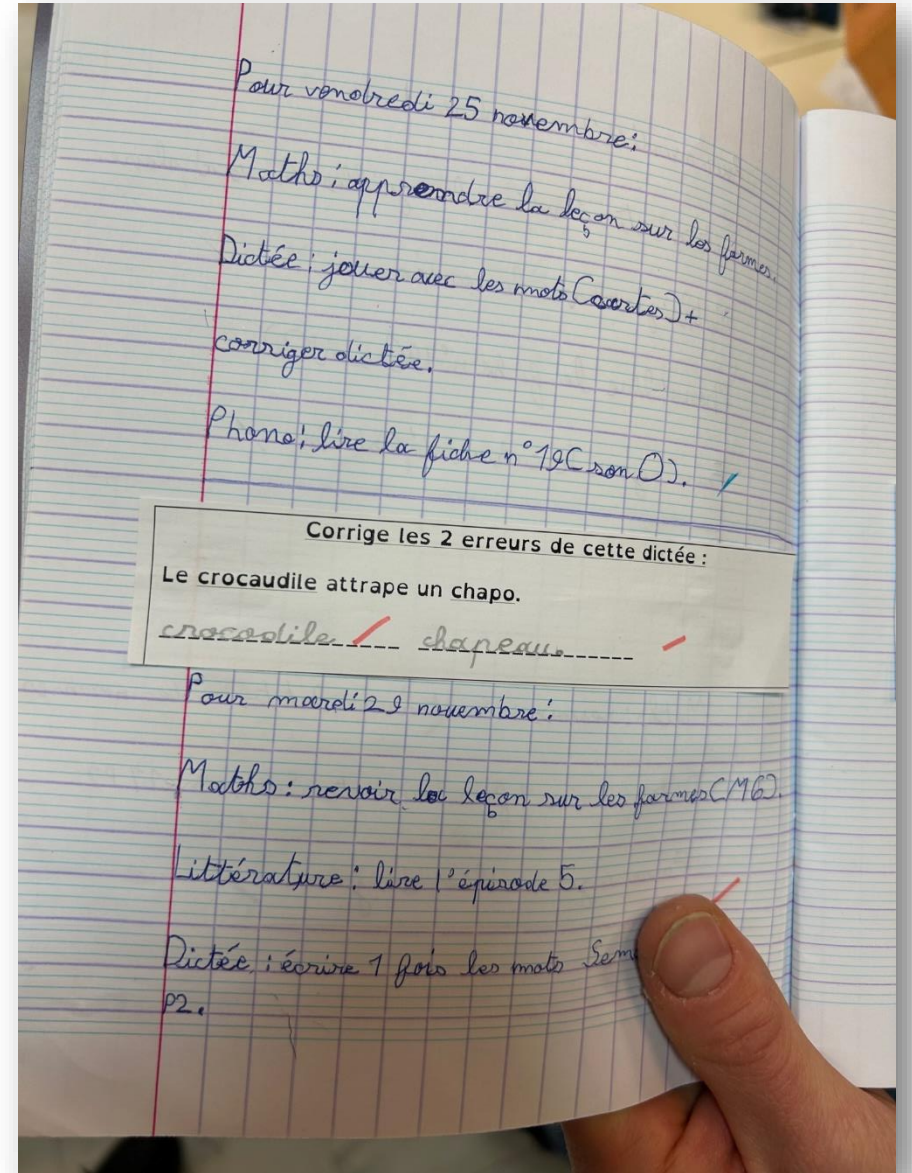 Pour vendredi 25 novembre:
Maths: apprendre la leçon sur les formes.
Dictée: jouer avec les mots (cartes) +
corriger dictée.
Phono: lire la fiche n° 19 (son O).
Corrige les 2 erreurs de cette dictée :
Le crocaudile attrape un chapo.
crocodile chapeau.
Pour mardi 29 novembre:
Maths: revoir la leçon sur les formes (M6).
Littérature: lire l'épisode 5.
Dictée: écrire 1 fois les mots
P2.